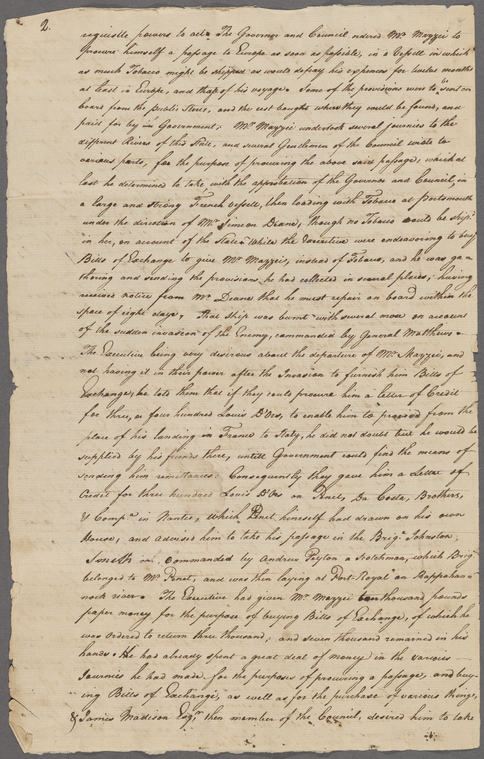 2.
requisite powers to act. The Governor and Council ordered Mr. Mazzei to
procure himself a passage to Europe as soon as possible, in a Vessell in which
as much Tobacco might be shipped as would defray his expences for twelve months
at least in Europe, and that of his voyage. Some of the provisions were to be sent on
board from the public Stores, and the rest bought where they could be found, and
paid for by Government; Mr. Mazzei undertook several journies to the
different Rivers of this State, and several Gentlemen of the Council wrote to
various parts, for the purpose of procuring the above said passage, which at
last he determined to take, with the approbation of the Governor and Council, in
a large and strong French Vessell, then loading with Tobacco at Portsmouth
under the direction of Mr. Simeon Deane, though no Tobacco could be ship.d
in her, on account of the State. While the Executive were endeavoring to buy
Bills of Exchange to give Mr. Mazzei, instead of Tobacco, and he was ga=
thering and sending the provisions he had collected in several places; having
received notice from Mr. Deane that he must repair on board within the
space of eight days, that ship was burnt with several more on account
of the sudden invasion of the Enemy, commanded by General Matthews.
The Executive being very desirous about the departure of Mr. Mazzei, and
not having it in their power after the Invasion to furnish him Bills of
Exchange; he told them that if they could procure him a letter of Credit
for three, or four hundred Louis D'Ors, to enable him to proceed from the
place of his landing in France to Italy, he did not doubt but he would be
supplied by his friends there, untill Government could find the means of
sending him remittances. Consequently they gave him a Letter of
Credit for three hundred Louis D'Ors on Penet, Da Costa, Brothers,
& Comp.a in Nantes, which Penet himself had drawn on his own
House; and advised him to take his passage in the Brig. Johnston
Smith commanded by Andrew Peyton a Scotchman, which Brig.
belonged to Mr. Penet, and was then laying at Port-Royal on Rappahan=
nock river. The Executive had given Mr. Mazzei ten thousand pounds
paper money for the purpose of buying Bills of Exchange, of which he
was ordered to return three thousand; and seven thousand remained in his
hands. He had already spent a great deal of money in the various
Journies he had made for the purpose of procuring a passage, and buy=
ing Bills of Exchange, as well as for the purchase of various things,
& James Madison Esq.r then member of the Council, desired him to take